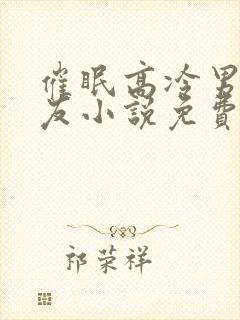 催眠高冷男
友小說免費
祁荣祥